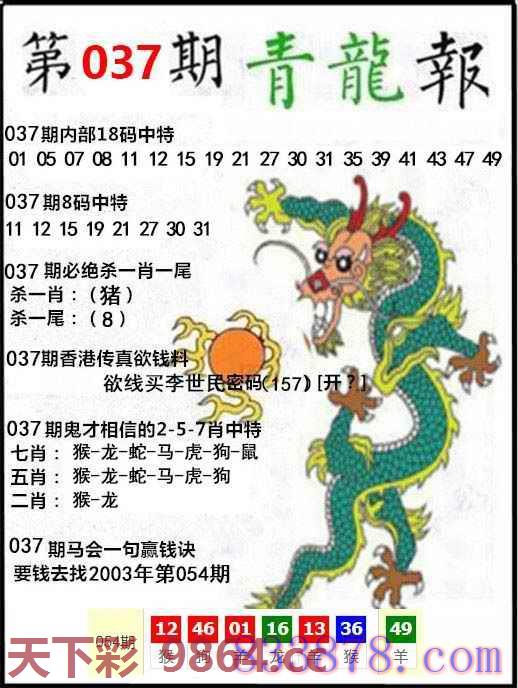 第037期青龍報
037期内部18码中特
01 05 07 08 11 12 15 19 21 27 30 31 35 39 41 43 47 49
037期8码中特
11 12 15 19 21 27 30 31
037期必绝杀一肖一尾
杀一肖：（猪）
杀一尾：（8）
037期香港传真欲钱料
欲线买李世民密码(157)[开?]
037期鬼才相信的2-5-7肖中特
七肖：猴-龙-蛇-马-虎-狗-鼠
五肖：猴-龙-蛇-马-虎-狗
二肖：猴-龙
037期马会一句赢钱诀
要钱去找2003年第054期
054期 12 46 01 16 13 36 49
猴 狗 羊 龙 羊 猴 羊
天下彩 9864.cc